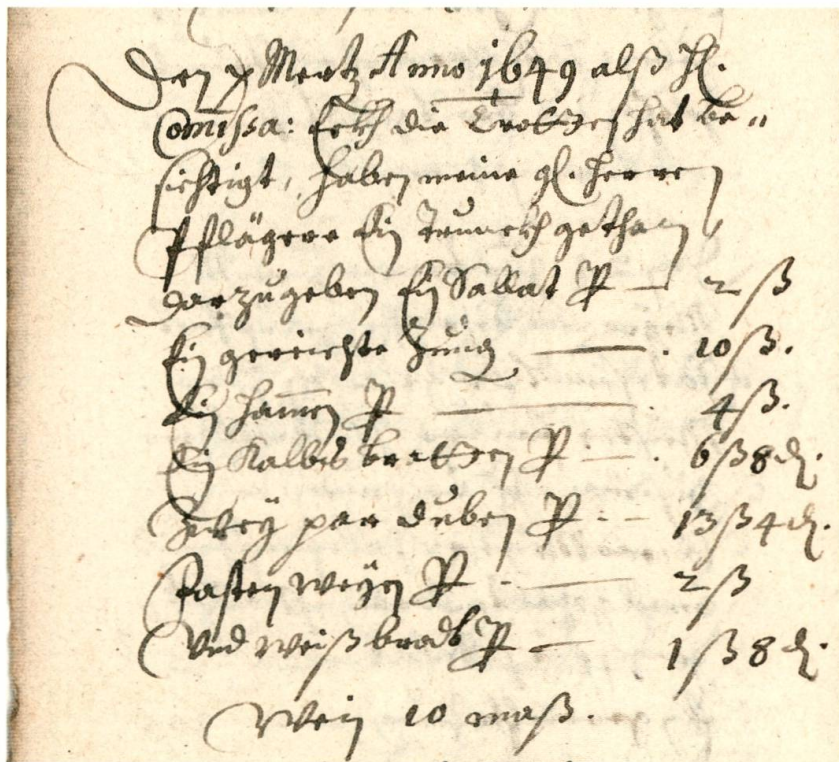 Den x Mertz Anno 1649 alß Hl.
Comissa: Eckh die Trotten hat be„
sichtigt, haben meine gl. Herren
Pflägere Ein Trunckh gethan,
darzugeben Ein Sallat P — 2 ß
Ein gereichte Zung — . 10 ß.
Ein Ham̄en P — . 4 ß.
Ein Kalbes bratten P — . 6 ß 8 d.
Zwey par duben P — 13 ß 4 d.
Fasten weyen P — 2 ß
Vnd weißbrodt P — 1 ß 8 d.
Wein 10 maß.